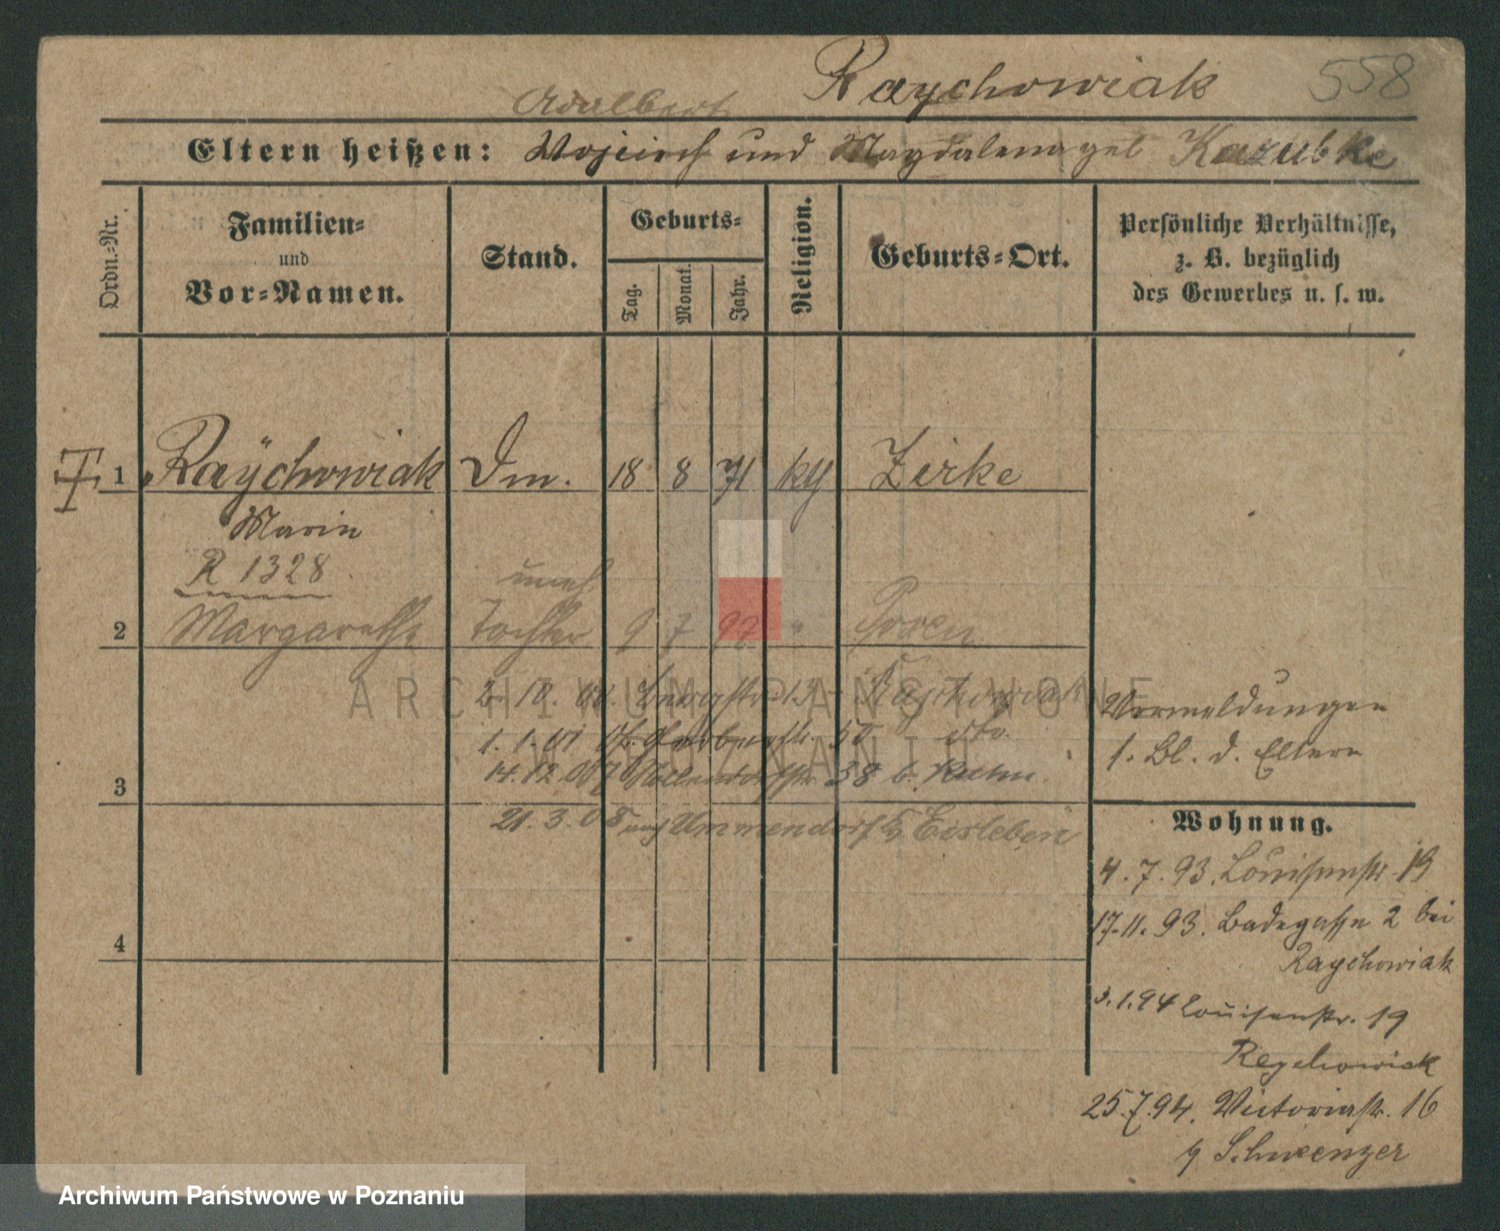 558
Raychowiak
Adalbert
Eltern heißen: Wojciech und Magdalena geb Kazubke
Ordn.-Nr.
Familien-
und
Vor-Namen.
Stand.
Geburts-
Tag.
Monat.
Jahr.
Religion.
Geburts-Ort.
Persönliche Verhältnisse,
z. B. bezüglich
des Gewerbes u. s. w.
1 Raÿchowiak Dm. 18 8 71 kg Zirke
Marie
R 1328
unehl
2 Margarethe Tochter 9 7 Posen
2. 10. 13 Raychowiak
1. 1. 01 50 dto
14. 12. 38 b. Kuhn
21. 3. 08 nach Ummendorf b/ Eisleben
3
4
Vermeldungen
s. Bl. d. Eltern
Wohnung.
4. 7. 93. Louisenstr. 19
17. 11. 93. Badegasse 2 bei
Raychowiak
3. 1. 94 Louisenstr. 19
Raychowiak
25. 7. 94. Victoriastr. 16
ARCHIWUM PAŃSTWOWE
W POZNANIU
Archiwum Państwowe w Poznaniu